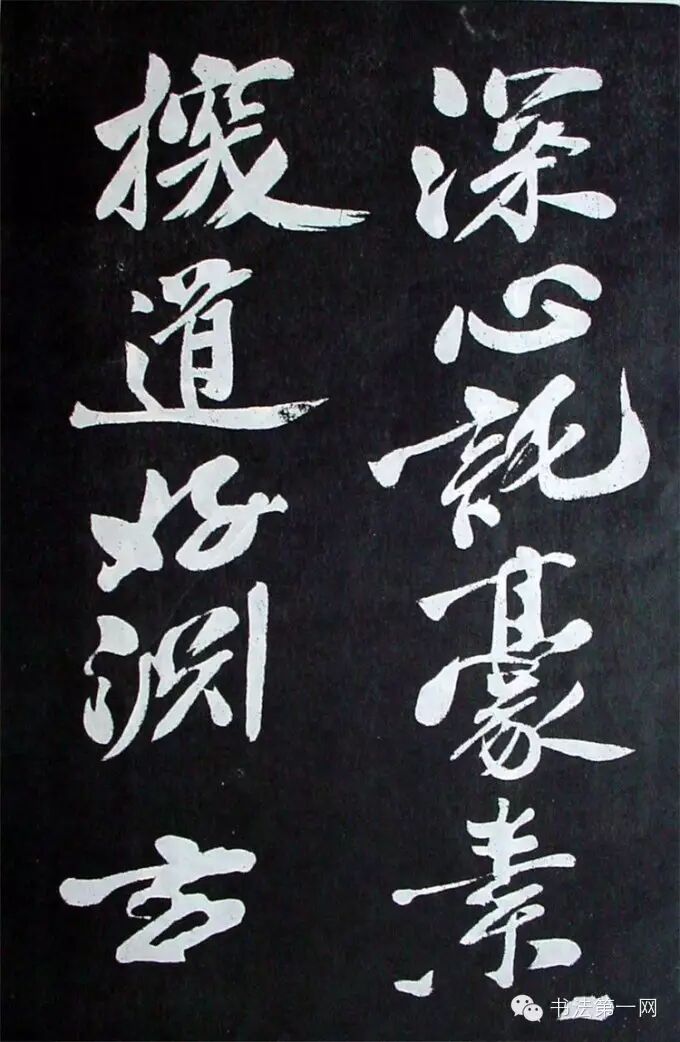 深心託豪素
探道好淵玄
书法第一网